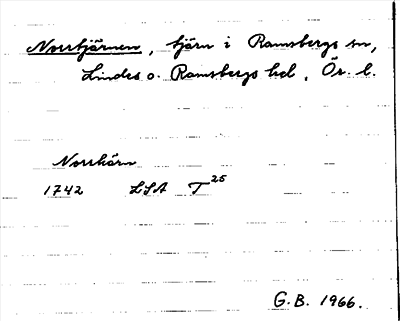 Norrtjärnen, tjärn i Ramsbergs sn,
Lindes o. Ramsbergs hd, Ör. l.
Norrkärn
1742 LSA T 25
G.B. 1966.